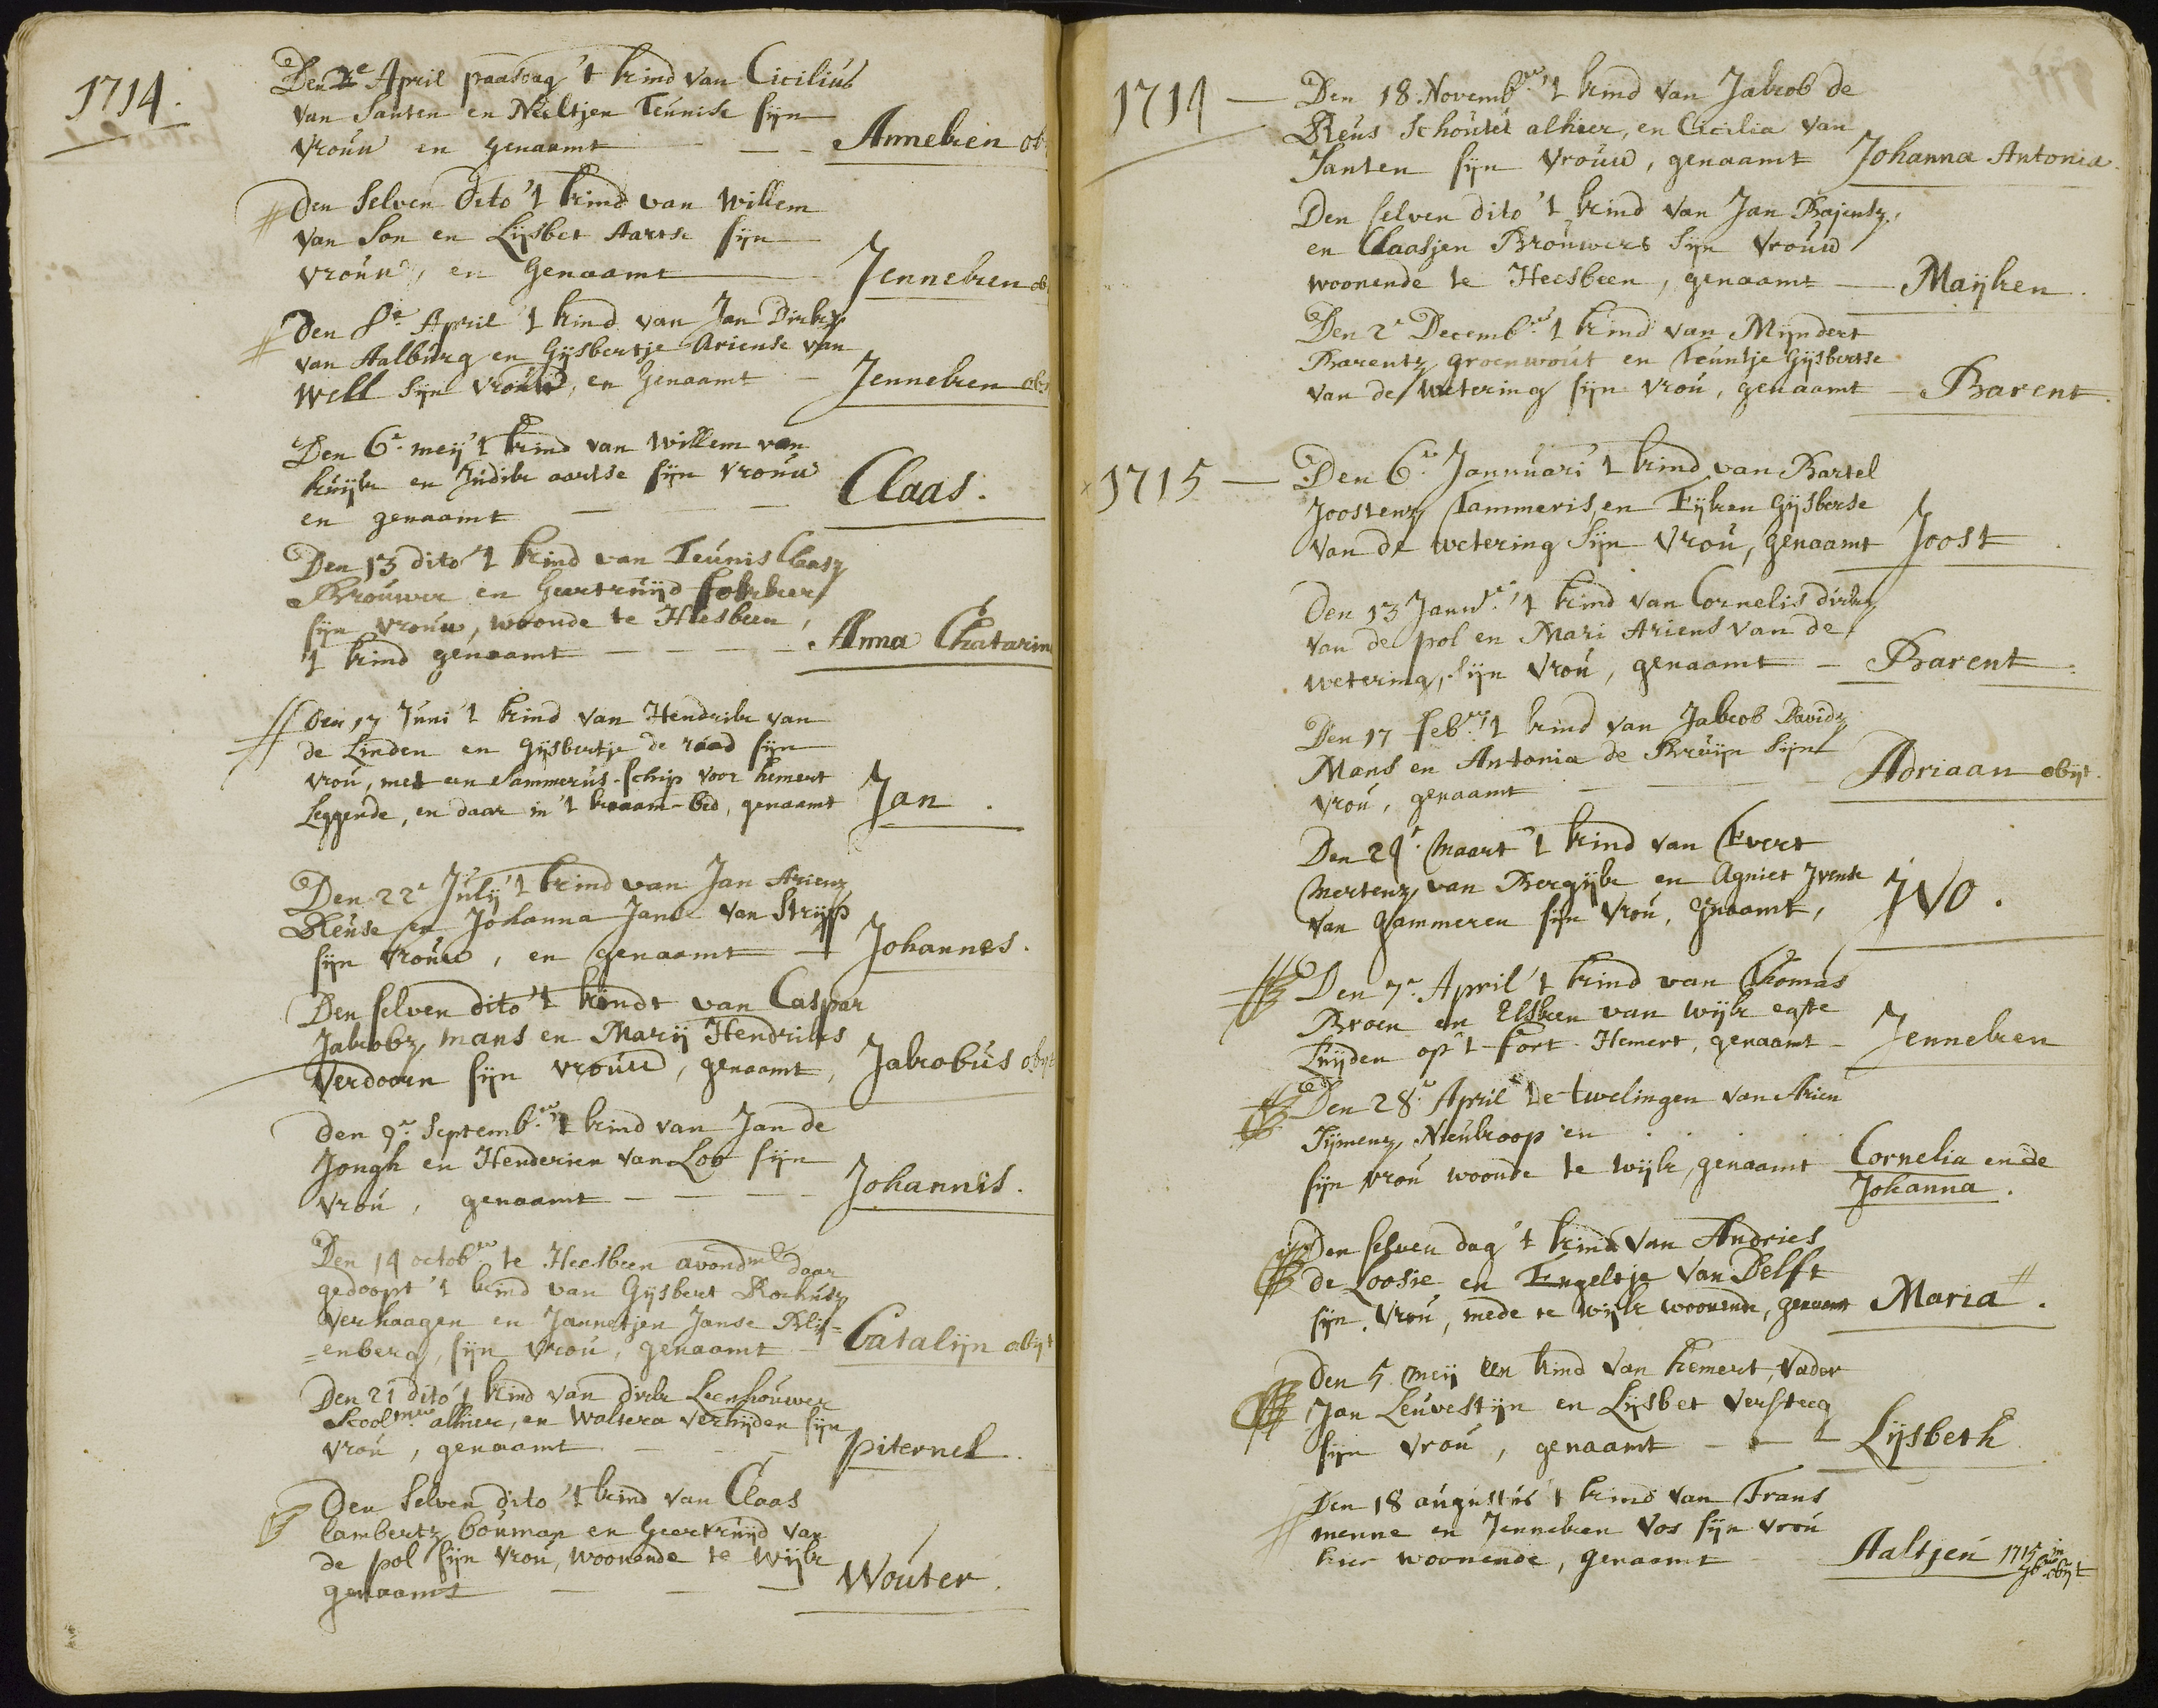 1714.
Den 2e April paasdag 't kind van Cicilius
van Santen en Neeltjen Teunise sijn
vrouw en genaamt - - - Anneken ob
Den selven dito 't kind van Willem
van Son en Lijsbet Aartse sijn
vrouw, en Genaamt Jenneken ob
Den 8e April 't kind van Jan Dirkz
van Aalburg en Gijsbertje Ariense van
Well sijn vrouw, en Genaamt - Jenneken ob
Den 6e meij 't kind van Willem van
kuijk en Judik aartse sijn vrouw
en genaamt - - Claas.
Den 13 dito 't kind van Teunis Claasz
Brouwer en Geertruijd fokker
sijn vrouw, woonde te Heesbeen,
't kind genaamt - - - - Anna Chatarin
Den 17 Juni 't kind van Hendrik van
de Linden en Gijsbertje de raad sijn
vrou, met een Sammerus-schip voor hemert
Leggende, en daar in 't kraam-bed, genaamt Jan.
Den 22e Julij 't kind van Jan Arienz
Reuse en Johanna Janse van Strijp
sijn vrouw, en genaamt - Johannes.
Den selven dito 't kindt van Caspar
Jakobz mans en Marij Hendriks
Verdoorn sijn vrouw, genaamt, Jakobus obijt
Den 9e Septemb.er 't kind van Jan de
Jongh en Henderien van Loo sijn
vrou, genaamt - - - - Johannis.
Den 14 octob.er te Heesbeen avondm.l daar
gedoopt 't kind van Gijsbert Rochusz
Verhaagen en Jannetjen Janse Bli=
=enberg, sijn vrou, genaamt - Catalijn obijt
Den 21 dito 't kind van dirk Leenhouwer
Schoolm.er alhier, en Woltera verhijden sijn
vrou, genaamt - - - piternel.
Den selven dito 't kind van Claas
lambertz bouman en Geertruijd van
de pol sijn vrou, woonende te wijk
genaamt - - - Wouter.
1714 - Den 18 Novemb.er 't kind van Jakob de
Reus Schoutet alhier, en Cicilia van
Santen sijn vrouw, genaamt Johanna Antonia.
Den selven dito 't kind van Jan Bajensz,
en Claasjen Brouwers sijn vrouw
woonende te Heesbeen, genaamt - Maijken.
Den 2e Decemb.er 't kind van Mijndert
Barentz groenwout en teuntje Gijsbertse
van de wetering sijn vrou, genaamt - Barent.
1715 - Den 6e Jannuari 't kind van Bartel
Joostenz Tammeris, en Eijken Gijsberse
van de wetering sijn vrou, genaamt Joost.
Den 13 Janu.r 't kind van Cornelis dirkz
van de pol en Mari Ariens van de
wetering, sijn vrou, genaamt - Barent.
Den 17 feb.r 't kind van Jakob Davidz
Mans en Antonia de Bruijn sijn
vrou, genaamt - - - Adriaan obijt.
Den 24e Maart 't kind van Evert
Mertenz van Bergijk en Agniet Ivense
van gammeren sijn vrou, gnaamt, IVO.
Den 7e April 't kind van Thomas
Broen en Elsken van wijk egte
Luijden op 't fort Hemert, genaamt - Jenneken
Den 28e April de twelingen van Arien
Tijmenz Nieukoop en . . . . .
sijn vrou woonde te wijk, genaamt Cornelia en de
Johanna.
Den selven dag 't kind van Andries
de Loosie en Engeltje van Delft
sijn vrou, mede te wijk woonende, genaamt Maria.
Den 5 meij een kind van hemert, vader
Jan Leuvestijn en Lijsbet versteeg
sijn vrou, genaamt - - - Lijsbeth
Den 18 augustus 't kind van Frans
menne en Jenneken Vos sijn vrou
hier woonende, genaamt Aaltjen 1715 in
9b.er obijt